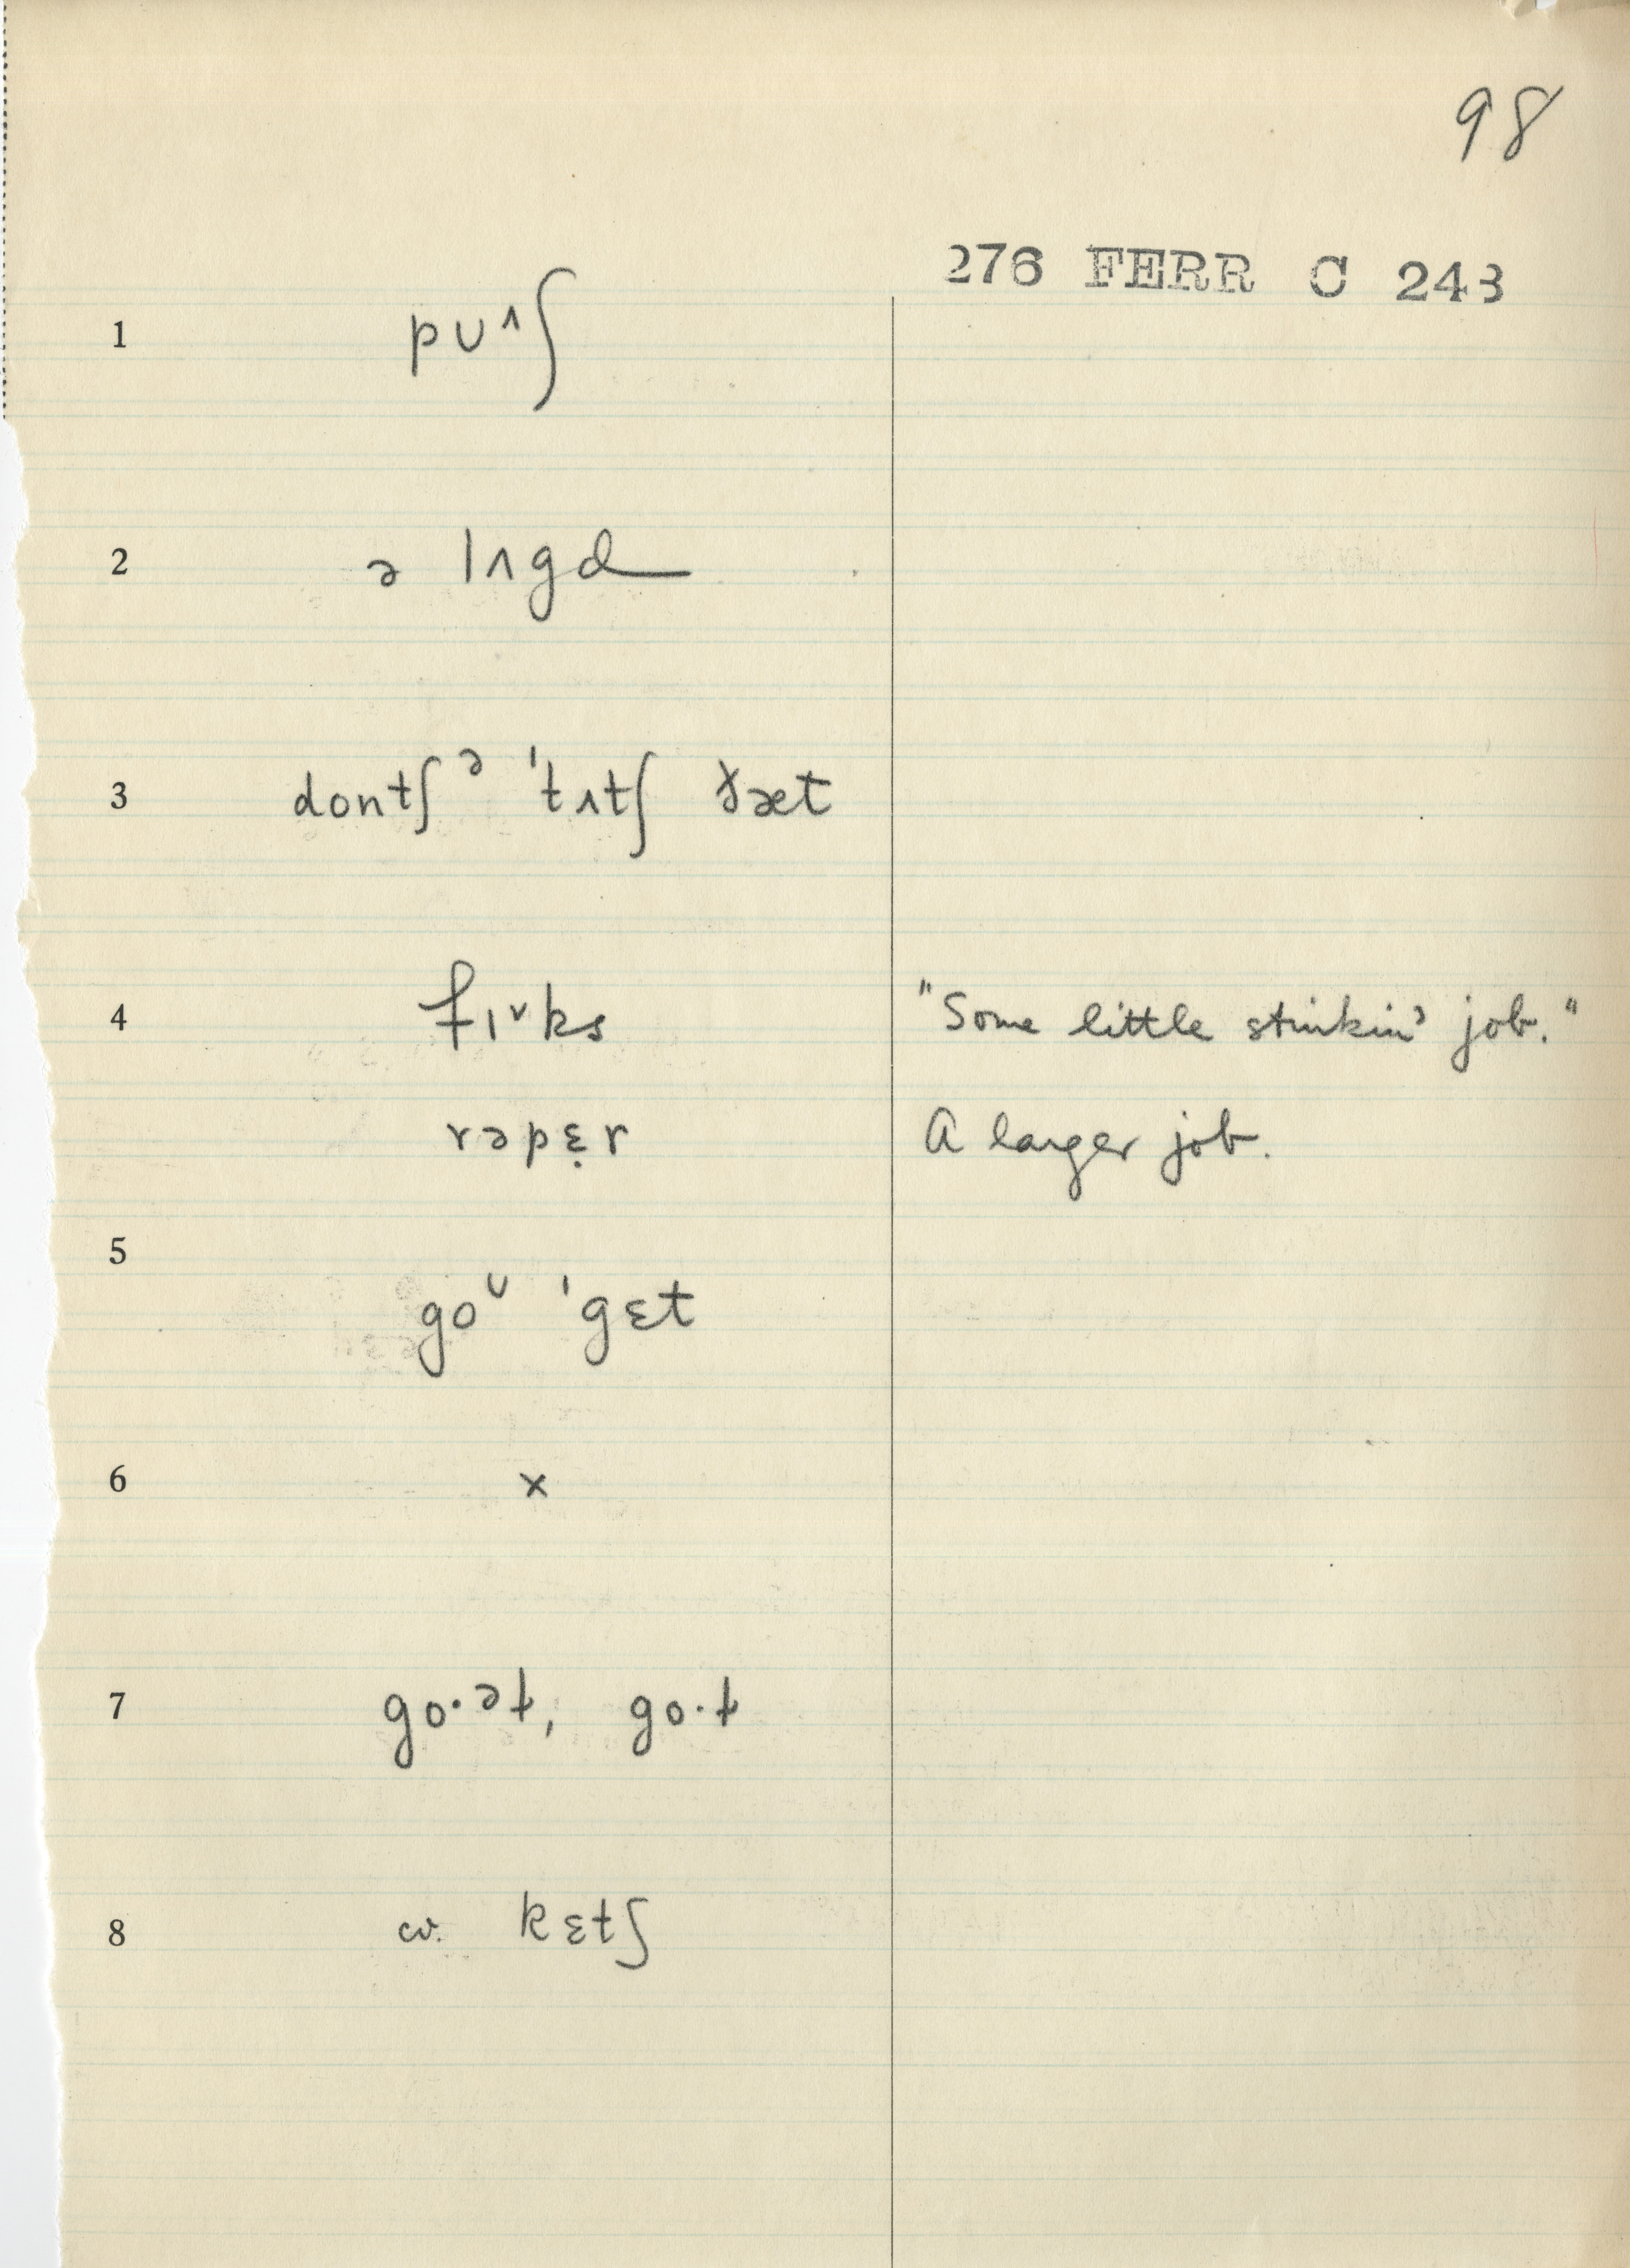 98
276 FERR C 243
1 pʊ^ʃ
2 ə lʌgd
3 dontʃ ə 'tʌtʃ ðæt
4 fɪ˅ks "Some little stinkin' job."
rəpɛ̣r A larger job.
5
go^ʊ 'gɛt
6 x
7 go·ət, go·t
8 cv. kɛtʃ